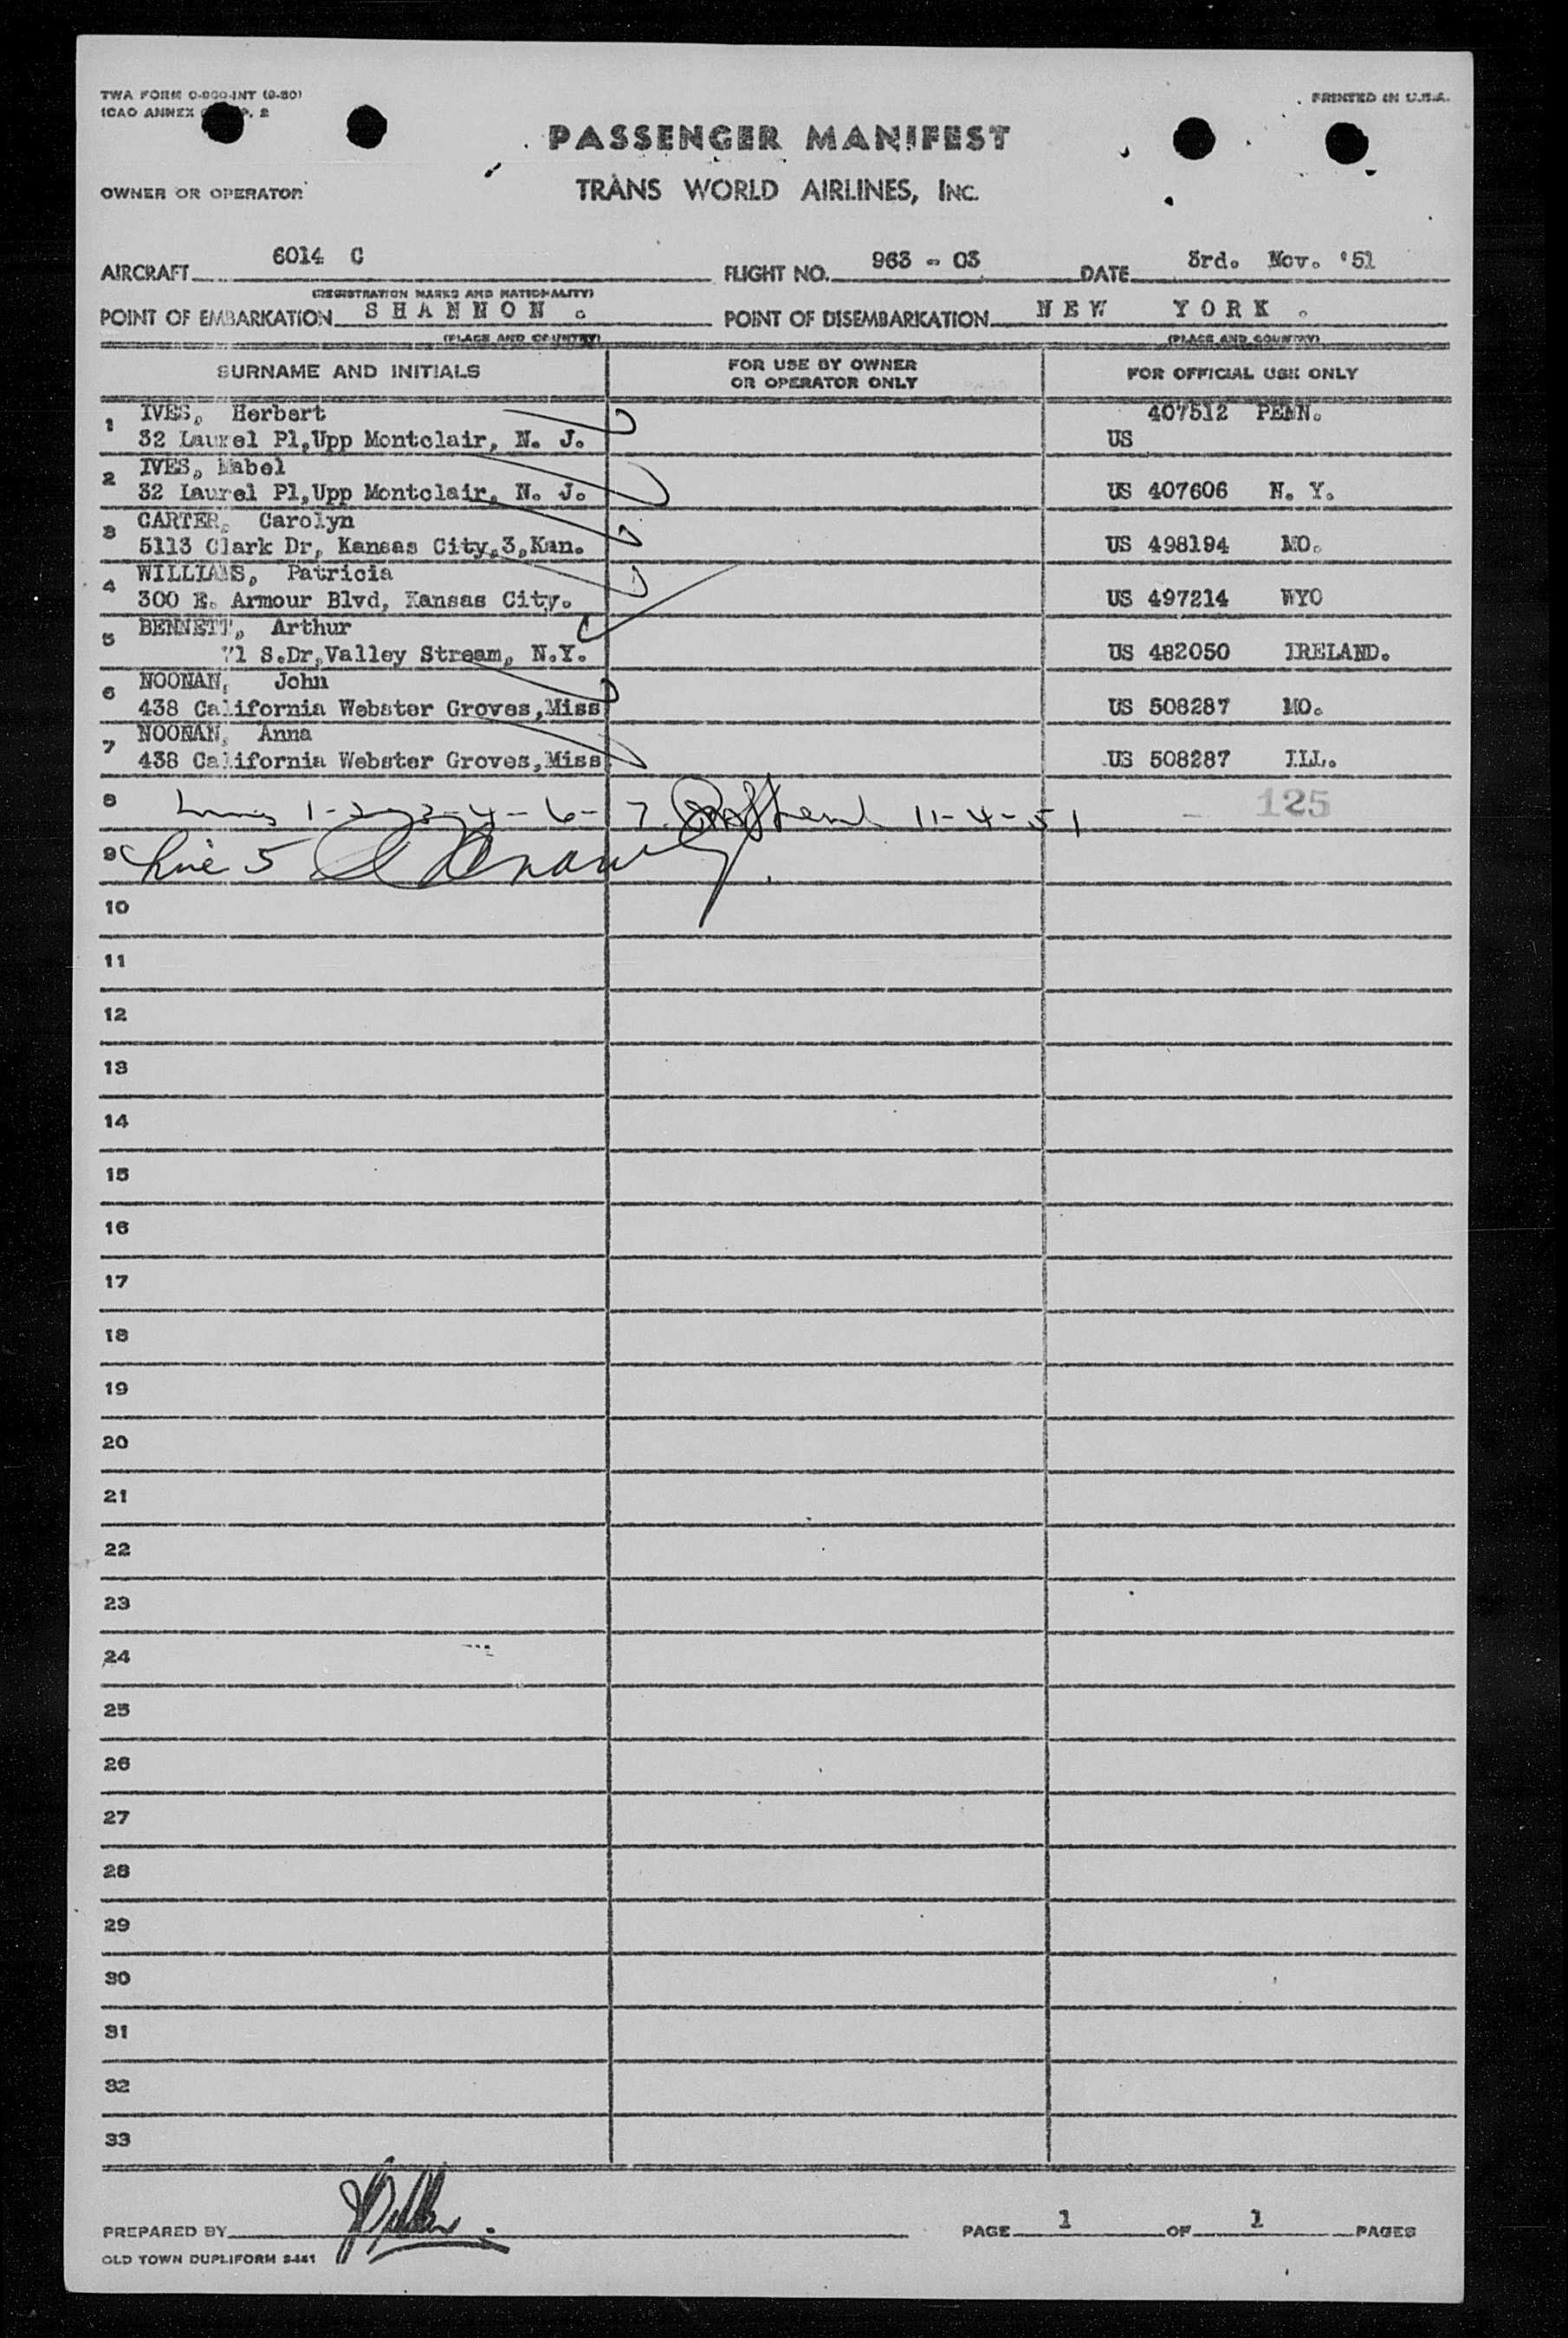 TWA FORM O-900-INT (9-50)
ICAO ANNEX P. 2
PRINTED IN U.S.A.
PASSENGER MANIFEST
OWNER OR OPERATOR
TRANS WORLD AIRLINES, INC.
AIRCRAFT 6014 C FLIGHT NO. 963 - 03 DATE 3rd. Nov. '51
(REGISTRATION MARKS AND NATIONALITY)
POINT OF EMBARKATION SHANNON. POINT OF DISEMBARKATION NEW YORK.
(PLACE AND COUNTRY) (PLACE AND COUNTRY)
SURNAME AND INITIALS FOR USE BY OWNER OR OPERATOR ONLY FOR OFFICIAL USE ONLY
1 IVES, Herbert 407512 PENN.
32 Laurel Pl,Upp Montclair, N. J. US
2 IVES, Mabel
32 Laurel Pl,Upp Montclair, N. J. US 407606 N. Y.
3 CARTER, Carolyn
5113 Clark Dr, Kansas City,3,Kan. US 498194 MO.
4 WILLIAMS, Patricia
300 E. Armour Blvd, Kansas City. US 497214 WYO
5 BENNETT, Arthur
71 S.Dr,Valley Stream, N.Y. US 482050 IRELAND.
6 NOONAN, John
438 California Webster Groves,Miss US 508287 MO.
7 NOONAN, Anna
438 California Webster Groves,Miss US 508287 ILL.
8 Lines 1-2-3-4-6-7 11-4-51 125
9 Line 5
10
11
12
13
14
15
16
17
18
19
20
21
22
23
24
25
26
27
28
29
30
31
32
33
PREPARED BY PAGE 1 OF 1 PAGES
OLD TOWN DUPLIFORM S-441